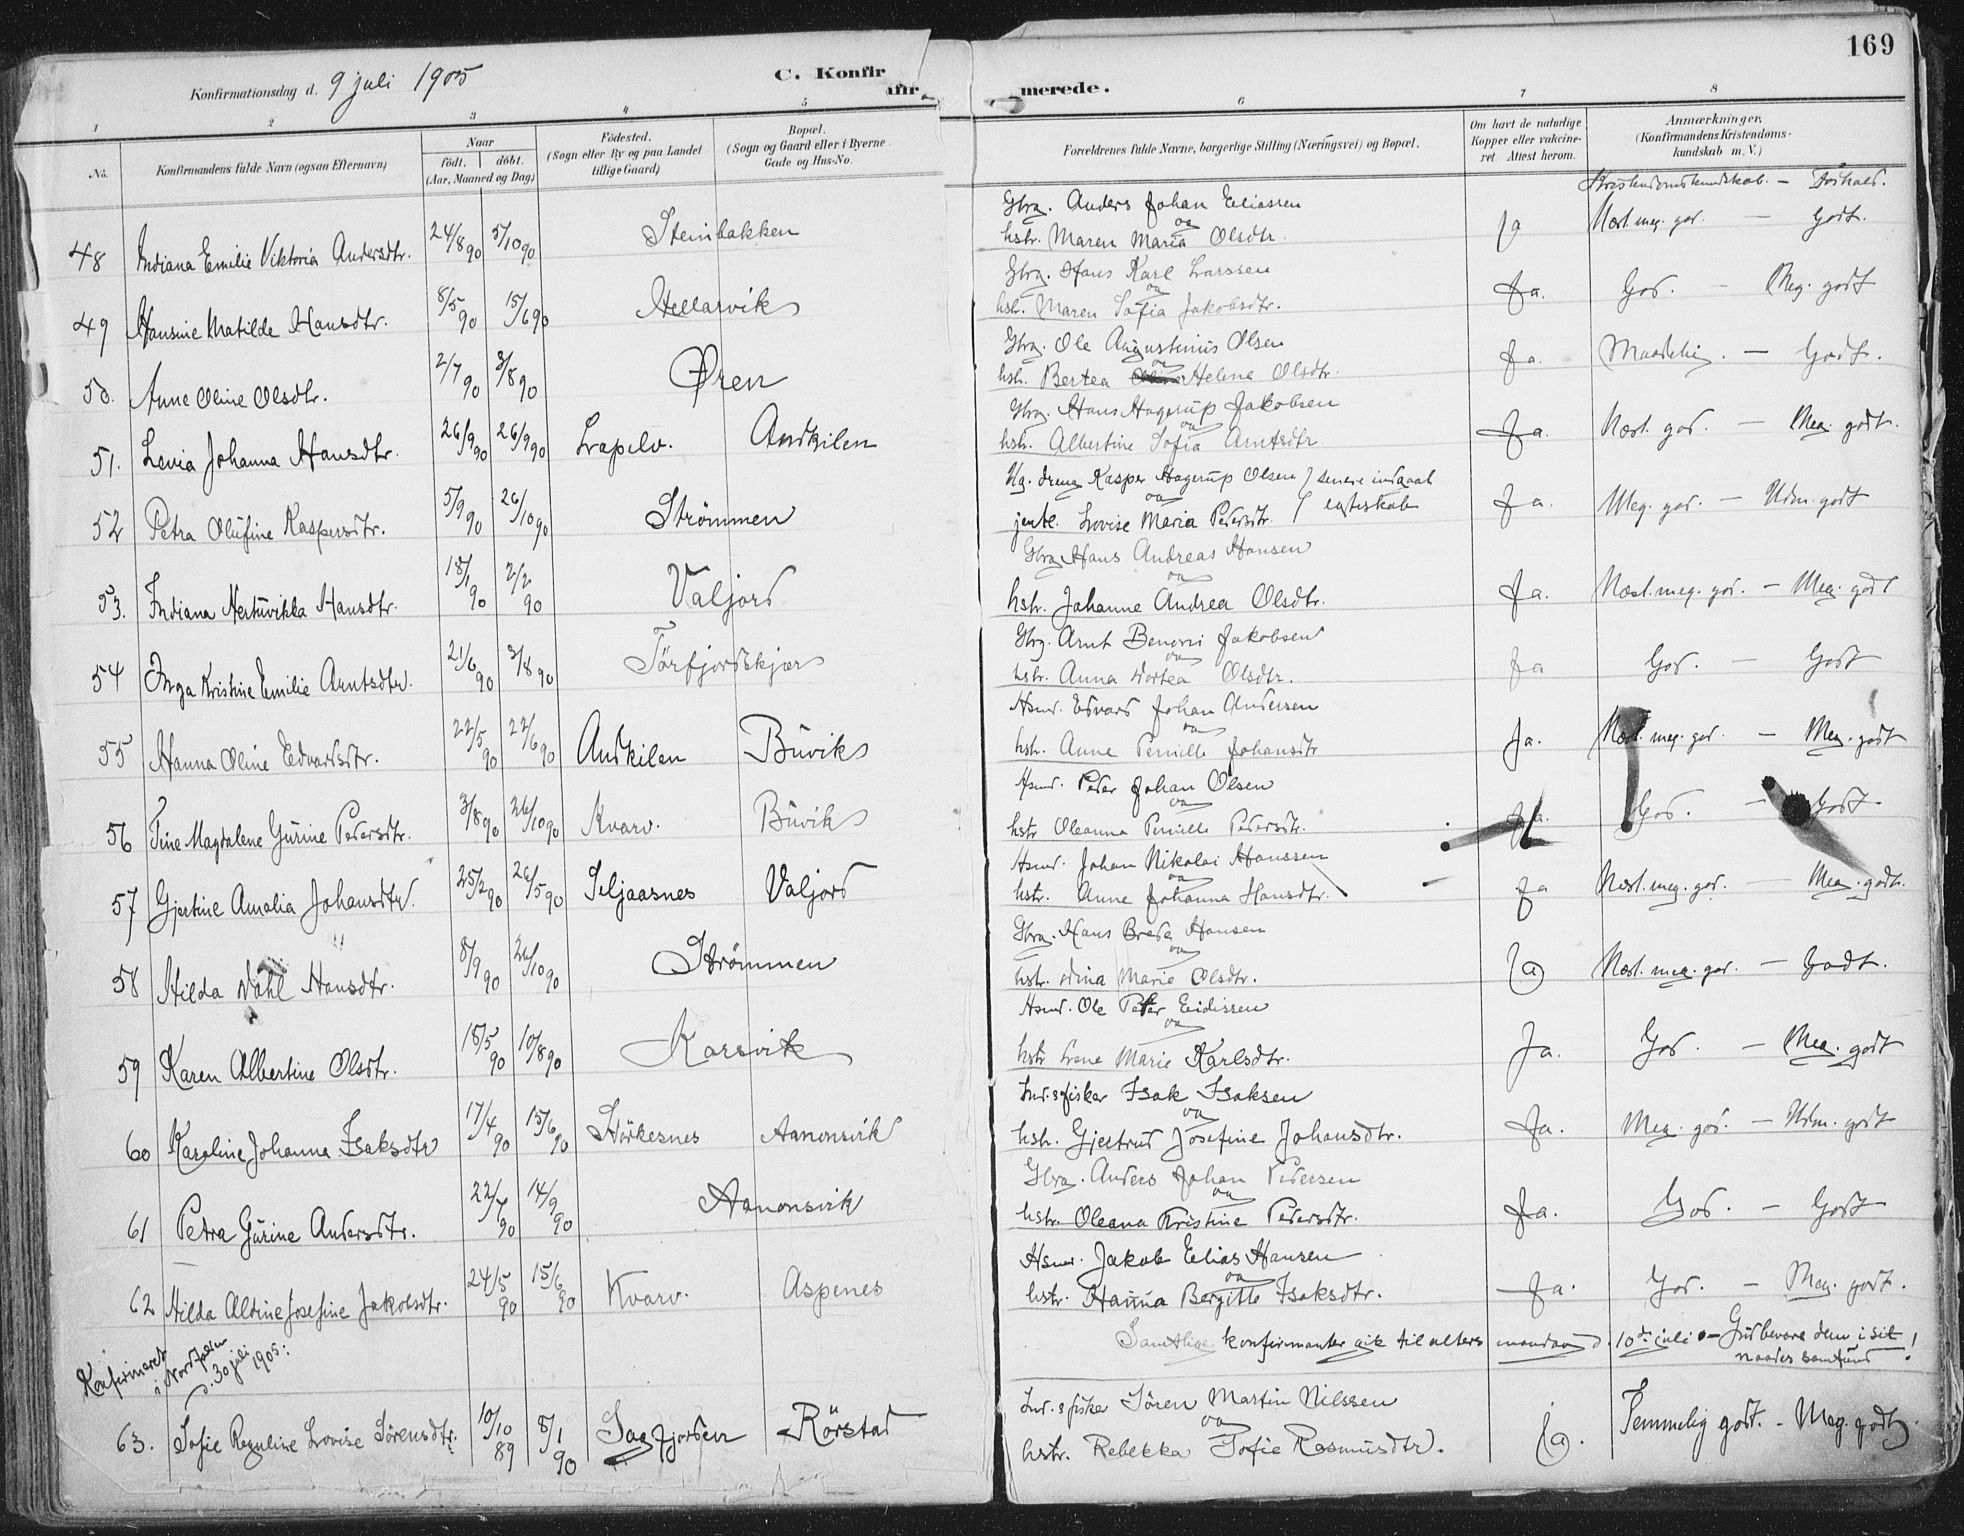 169
Konfirmationsdag d. 9 juli 1905
C. Konfir merede.
1 2 3 4 5 6 7 8
No.
Konfirmandens fulde Navn (ogsaa Efternavn)
Naar
födt. döbt.
(Aar, Maaned og Dag)
Födested.
(Sogn eller By og paa Landet
tillige Gaard)
Bopæl.
(Sogn og Gaard eller i Byerne
Gade og Hus-No.
Forældrenes fulde Navne, borgerlige Stilling (Næringsvei) og Bopæl.
Om havt de naturlige
Kopper eller vakcine-
ret. Attest herom.
Anmærkninger.
(Konfirmandens Kristendoms-
kundskab m. V.)
Kristendomskundskab. - Forhold.
48 Indiana Emilie Viktoria Andersdtr. 24/8 90 5/10 90 Steinbakken
Gbrg. Anders Johan Eliassen
og
hstr. Maren Maria Olsdtr. ja Næst. meg. god. - Godt.
49 Hansine Matilde Hansdtr. 8/5 90 15/6 90 Hellarvik
Gbrg. Hans Karl Larssen
og
hstr. Maren Sofia Jakobsdtr. Ja. God. - Meg. godt
50. Anne Oline Olsdtr. 2/7 90 3/8 90 Øren
Gbrg. Ole Augustinus Olsen
og
hstr. Bertea Helena Olsdtr. Ja. Maadelig. - Godt.
51. Levia Johanna Hansdtr. 26/9 90 26/9 90 Lapelv. Andkilen
Gbrg. Hans Hagerup Jakobsen
og
hstr. Albertine Sofia Arntsdtr. Ja. Næst. god. - Meg. godt.
52 Petra Olufine Kaspersdtr. 5/9 90 26/10 90 Strömmen
Ug. dreng Kasper Hagerup Olsen } senere indgaat
og
jente. Lovise Maria Pedersdtr. } egteskab Ja. Meg. god. - Udm. godt
53. Indiana Hertuvikka Hansdtr. 18/1 90 2/2 90 Valjord
Gbrg. Hans Andreas Hansen
og
hstr. Johanne Andrea Olsdtr. Ja. Næst. meg. god. - Meg. godt
54 Inga Kristine Emilie Arntsdtr. 21/6 90 3/8 90 Törfjordskjær
Gbrg. Arnt Benoni Jakobsen
og
hstr. Anna Dortea Olsdtr. Ja God. - Godt
55 Hanna Oline Edvardsdtr. 22/5 90 22/6 90 Andkilen Buvik
Hsmd. Edvard Johan Andersen
og
hstr. Anne Pernille Johansdtr Ja. Næst. meg. god. - Meg. godt
56 Tine Magdalene Gurine Pedersdtr. 3/8 90 26/10 90 Kvarv. Buvik
Hsmd. Peder Johan Olsen
og
hstr Oleanna Pernille Pedersdtr. Ja. God. - Godt
57 Gjertine Amalia Johansdtr. 25/2 90 26/5 90 Seljaasnes Valjord
Hsmd. Johan Nikolai Hanssen
og
hstr. Anne Johanna Hansdtr. Ja Næst. meg. god. - Meg. godt.
58 Hilda Dahl Hansdtr. 8/9 90 26/10 90 Strömmen
Gbrg. Hans Breda Hansen
og
hstr. Dina Marie Olsdtr. Ja Næst. meg. god. - Godt.
59 Karen Albertine Olsdtr. 18/5 90 10/8 90 Korsvik
Hsmd. Ole Peter Eidissen
og
hstr Lene Marie Karlsdtr. Ja. God. - Meg. godt
60 Karoline Johanna Isaksdtr 17/4 90 15/6 90 Störkesnes Aanonsvik
Ind. & fisker Isak Isaksen
og
hstr. Gjertrud Josefine Johansdtr. Ja. Meg. god. - Udm. godt
61 Petra Gurine Andersdtr. 22/7 90 14/9 90 Aanonsvik
Gbrg. Anders Johan Pedersen
og
hstr. Oleana Kristine Pedersdtr. Ja. God. - Godt
62 Hilda Aldine Josefine Jakobsdtr. 24/5 90 15/6 90 Kvarv. Aspenes
Hsmd. Jakob Elias Hansen
og
hstr. Hanna Bergitte Isaksdtr. Ja. God. - Meg. godt.
Samtlige konfirmanter gik til alters mandag d. 10de juli - Gud bevare dem i sit
naades samfund!
Konfirmeret
i Nordfolden
d. 30 juli 1905:
63. Sofie Reguline Lovise Sörensdtr. 10/10 89 8/1 90 Sagfjorden Rörstad
Ind. & fisker Sören Martin Nilssen
og
hstr. Rebekka Sofie Rasmusdtr. Ja. Temmelig godt. - Meg. godt.